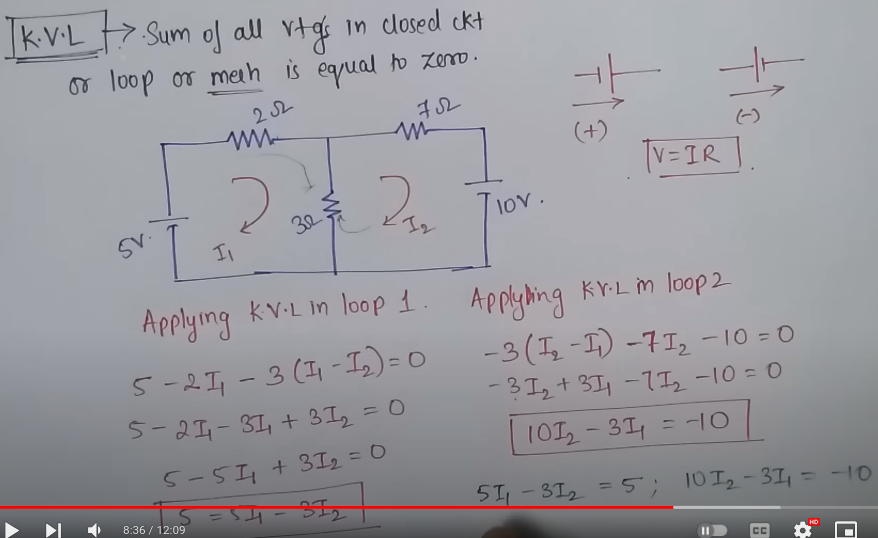 K.V.L → Sum of all vtgs in closed ckt
or loop or mesh is equal to zero.
(+)
(-)
V = IR
2Ω
7Ω
5V.
I₁
3Ω
I₂
10V.
Applying K.V.L in loop 1.
5 - 2I₁ - 3(I₁ - I₂) = 0
5 - 2I₁ - 3I₁ + 3I₂ = 0
5 - 5I₁ + 3I₂ = 0
5 = 5I₁ - 3I₂
Applying K.V.L in loop 2
-3(I₂ - I₁) - 7I₂ - 10 = 0
-3I₂ + 3I₁ - 7I₂ - 10 = 0
10I₂ - 3I₁ = -10
5I₁ - 3I₂ = 5 ; 10I₂ - 3I₁ = -10
8:36 / 12:09
CC
HD